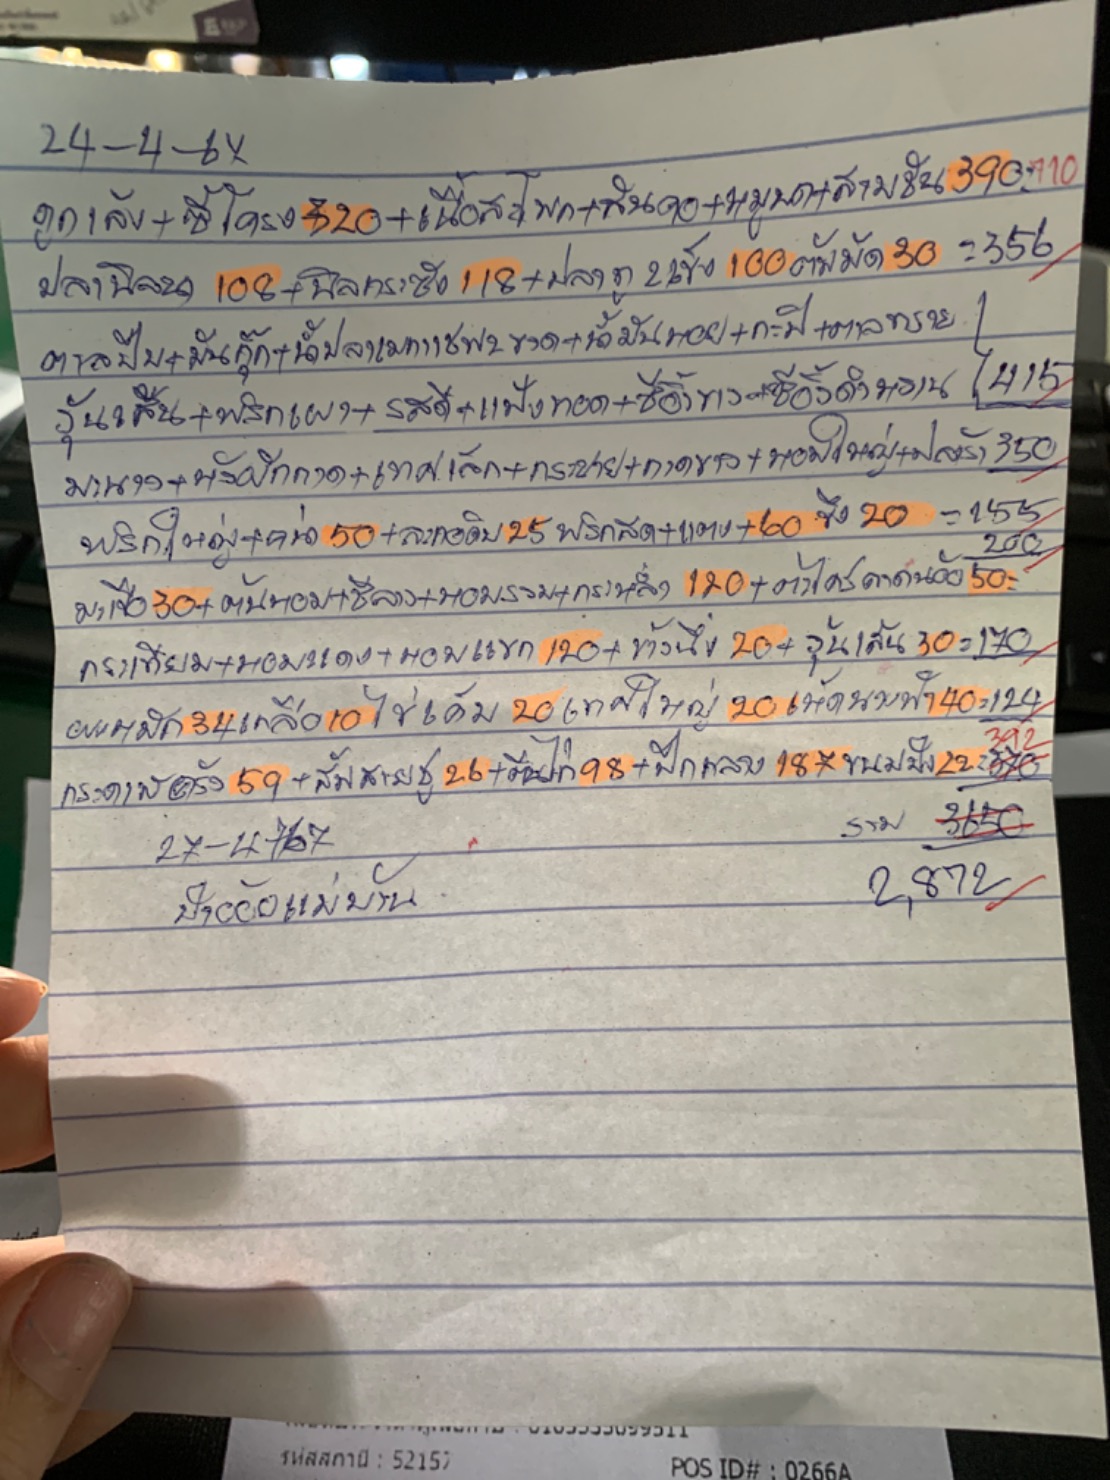 24-4-67
กูกเล้ง+ซี่โครง 320+เนื้อสะโพก+สันคอ+หมูบด+สามชั้น 390=710
ปลานิลนา 108+นิลกระชัง 118+ปลาทู 2เข่ง 100 ตับมัด 30 =356
ตาลปีบ+มันกุ๊ก+น้ำปลาเมกาเชฟ2ขวด+น้ำมันหอย+กะปิ+ตาลทราย
วุ้นเส้น+พริกเผา+รสดี+แป้งทอด+ซีอิ้วขาว+ซีอิ้วดำหวาน 415
มะนาว+ +เทศเล็ก+กระชาย+กาดขาว+หอมใหญ่+ปลาร้า 350
พริกใหญ่+คน่า 50+ละกอดิบ 25 พริกสด+แตง+60 ขิง 20 =155
200
มะเขือ 30+ต้นหอม+ชีลาว+หอมรวม+กระหล่ำ 120+ 50=
กระเทียม+หอมแดง+หอมแขก 120+ข้าวนึ่ง 20+วุ้นเส้น 30=170
34 เกลือ 10 ไข่เค็ม 20 เทศใหญ่ 20 เห็ดนางฟ้า 40=124
392
กระดาษครัว 59+ส้มสายชู 26+ตีนไก่ 98+ปีกกลาง 187 ขนมปัง 22=
27-4-67 รวม 3650
ป้าอ้อยแม่บ้าน 2,872
รหัสสถานี : 52157
POS ID# : 0266A